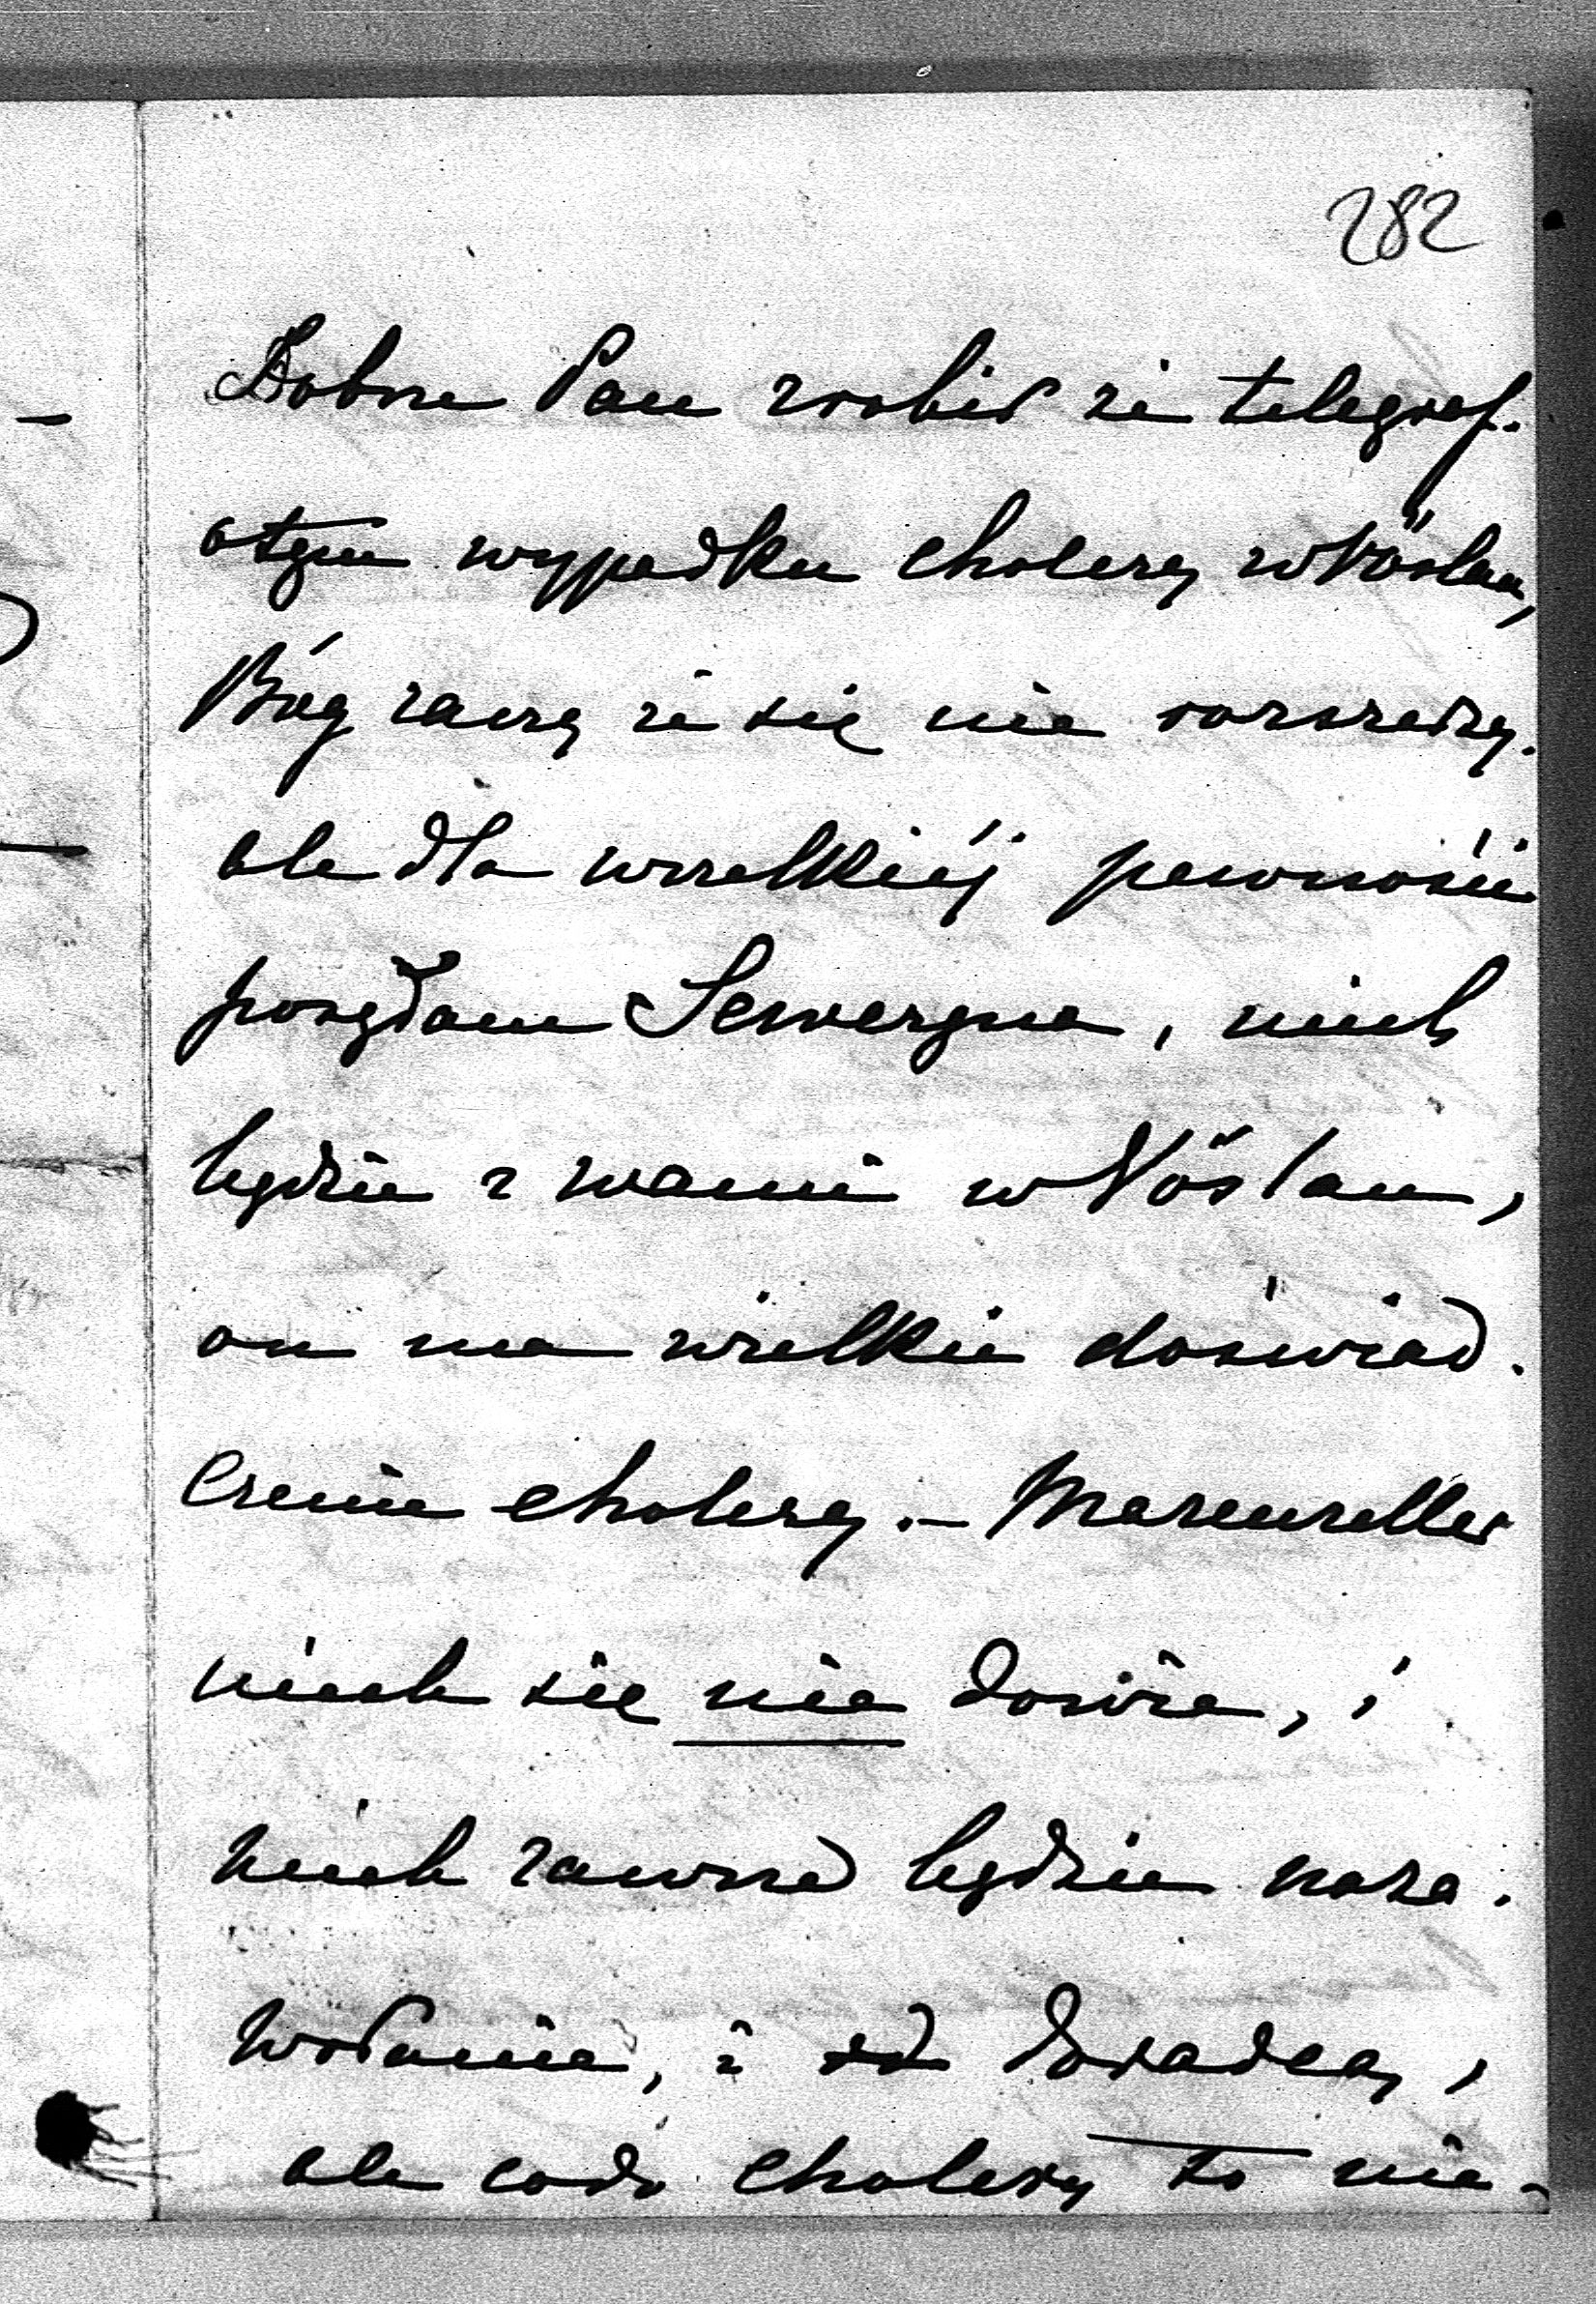 282
Dobrze Pan zrobił że telegraf.
o tym wypadku cholery w Vöslau,
Bóg że się nie
ale dla wszelkiéj pewności
posyłam Seweryna, niech
będzie z wami w Vöslau,
on ma wielkie doświad.
czenie cholery. – Marenzeller
niech się nie dowie, i
niech zawsze będzie na za.
wołanie, i od doradcą,
ale co do cholery to nie-